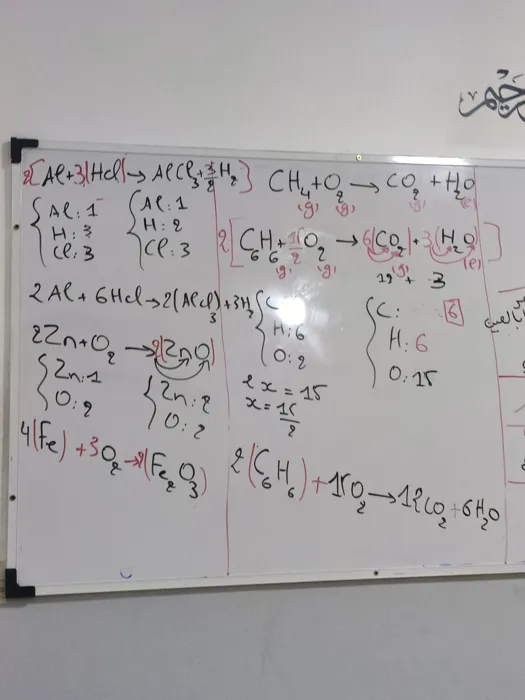 حيم
2[Al + 3(HCl) → AlCl₃ + 3/2 H₂]
Al: 1
H: 3
Cl: 3
Al: 1
H: 2
Cl: 3
2Al + 6HCl → 2(AlCl)₃ + 3H₂
2Zn + O₂ → 2(ZnO)
Zn: 1
O: 2
Zn: 2
O: 2
4(Fe) + 3O₂ → 2(Fe₂O₃)
CH₄ + O₂ → CO₂ + H₂O
(g) (g) (g) (l)
2[C₆H₆ + 15/2 O₂ → 6(CO₂) + 3(H₂O)]
(g) (g) (g) (l)
12 + 3
C:
H: 6
O: 2
C: 6
H: 6
O: 15
2x = 15
x = 15/2
2(C₆H₆) + 15O₂ → 12CO₂ + 6H₂O